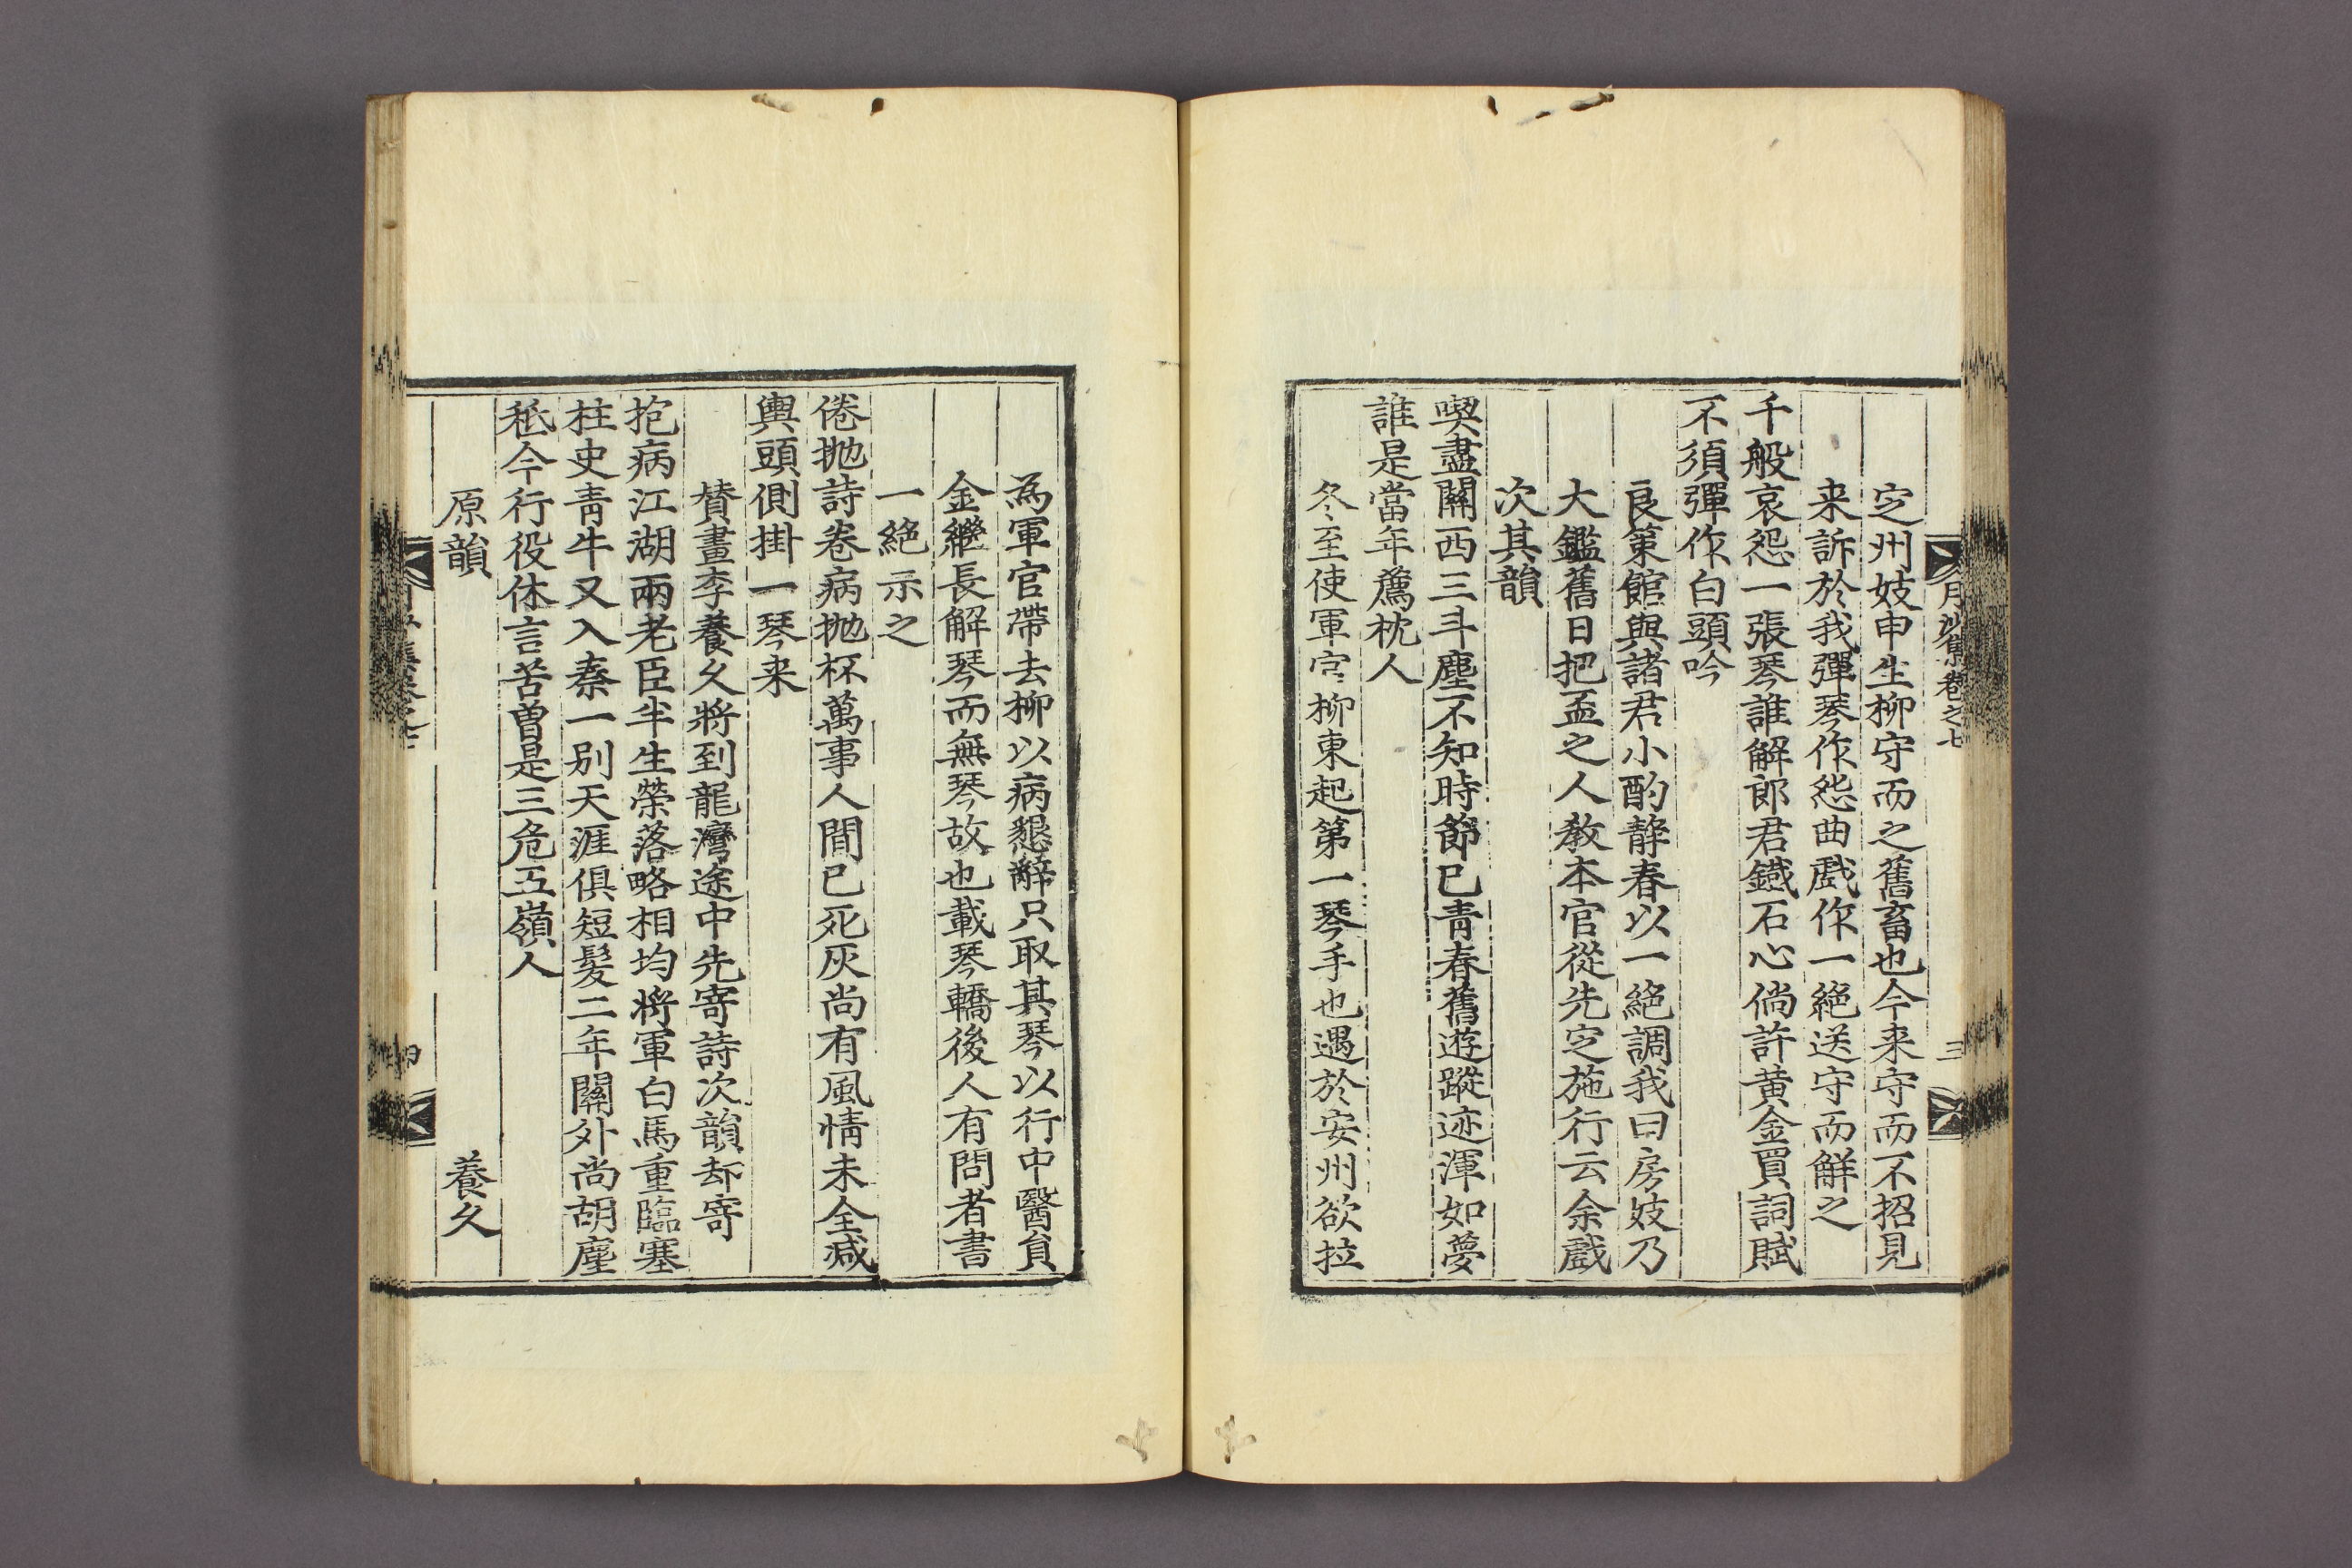 月沙集卷之七
三
定州妓申生柳守而之舊畜也今来守而不招見
来訴於我彈琴作怨曲戱作一絶送守而觧之
千般哀怨一張琴誰解郎君鐵石心倘許黄金買詞賦
不須彈作白頭吟
良策館與諸君小酌静春以一絶調我曰房妓乃
大鑑舊日把盃之人教本官從先定施行云余戱
次其韻
喫盡關西三斗塵不知時節已青春舊遊蹤迹渾如夢
誰是當年薦枕人
冬至使軍官柳東起第一琴手也遇於安州欲拉
為軍官帶去柳以病懇辭只取其琴以行中醫負
金繼長解琴而無琴故也載琴轎後人有問者書
一絶示之
倦抛詩卷病抛杯萬事人間已死灰尚有風情未全减
輿頭側掛一琴来
賛畫李養久將到龍灣途中先寄詩次韻却寄
抱病江湖兩老臣半生榮落略相均將軍白馬重臨塞
柱史青牛又入秦一别天涯俱短髮二年關外尚胡塵
秪今行役休言苦曽是三危五嶺人
原韻 養久
四